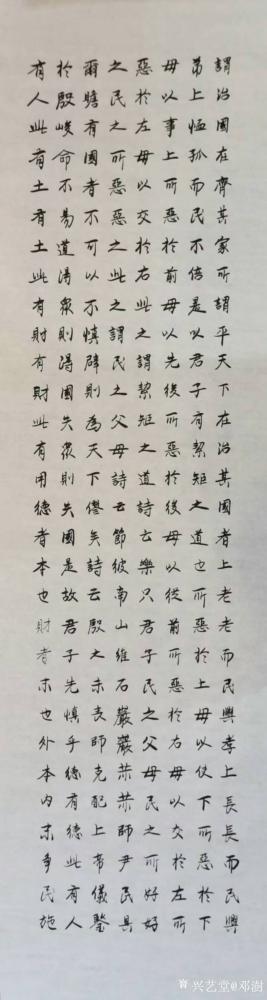 謂治國在齊其家所謂平天下在治其國者上老老而民興孝上長長而民興
弟上恤孤而民不倍是以君子有絜矩之道也所惡於上毋以使下所惡於下
毋以事上所惡於前毋以先後所惡於後毋以從前所惡於右毋以交於左所
惡於左毋以交於右此之謂絜矩之道詩云樂只君子民之父母民之所好好
之民之所惡惡之此之謂民之父母詩云節彼南山維石巖巖赫赫師尹民具
爾瞻有國者不可以不慎辟則為天下僇矣詩云殷之未喪師克配上帝儀鑒
於殷峻命不易道得眾則得國失眾則失國是故君子先慎乎德有德此有人
有人此有土有土此有財有財此有用德者本也財者末也外本內末爭民施
兴艺堂@邓澍